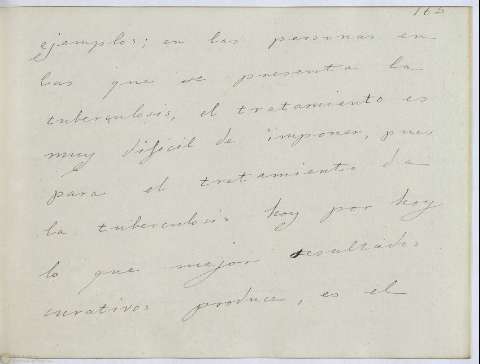 ejemplos; en las personas en
las que se presenta la
tuberculosis, el tratamiento es
muy dificil de imponer, pues
para el tratamiento da
la tuberculosis hoy por hoy
lo que mejor resultados
curativos produce, es el